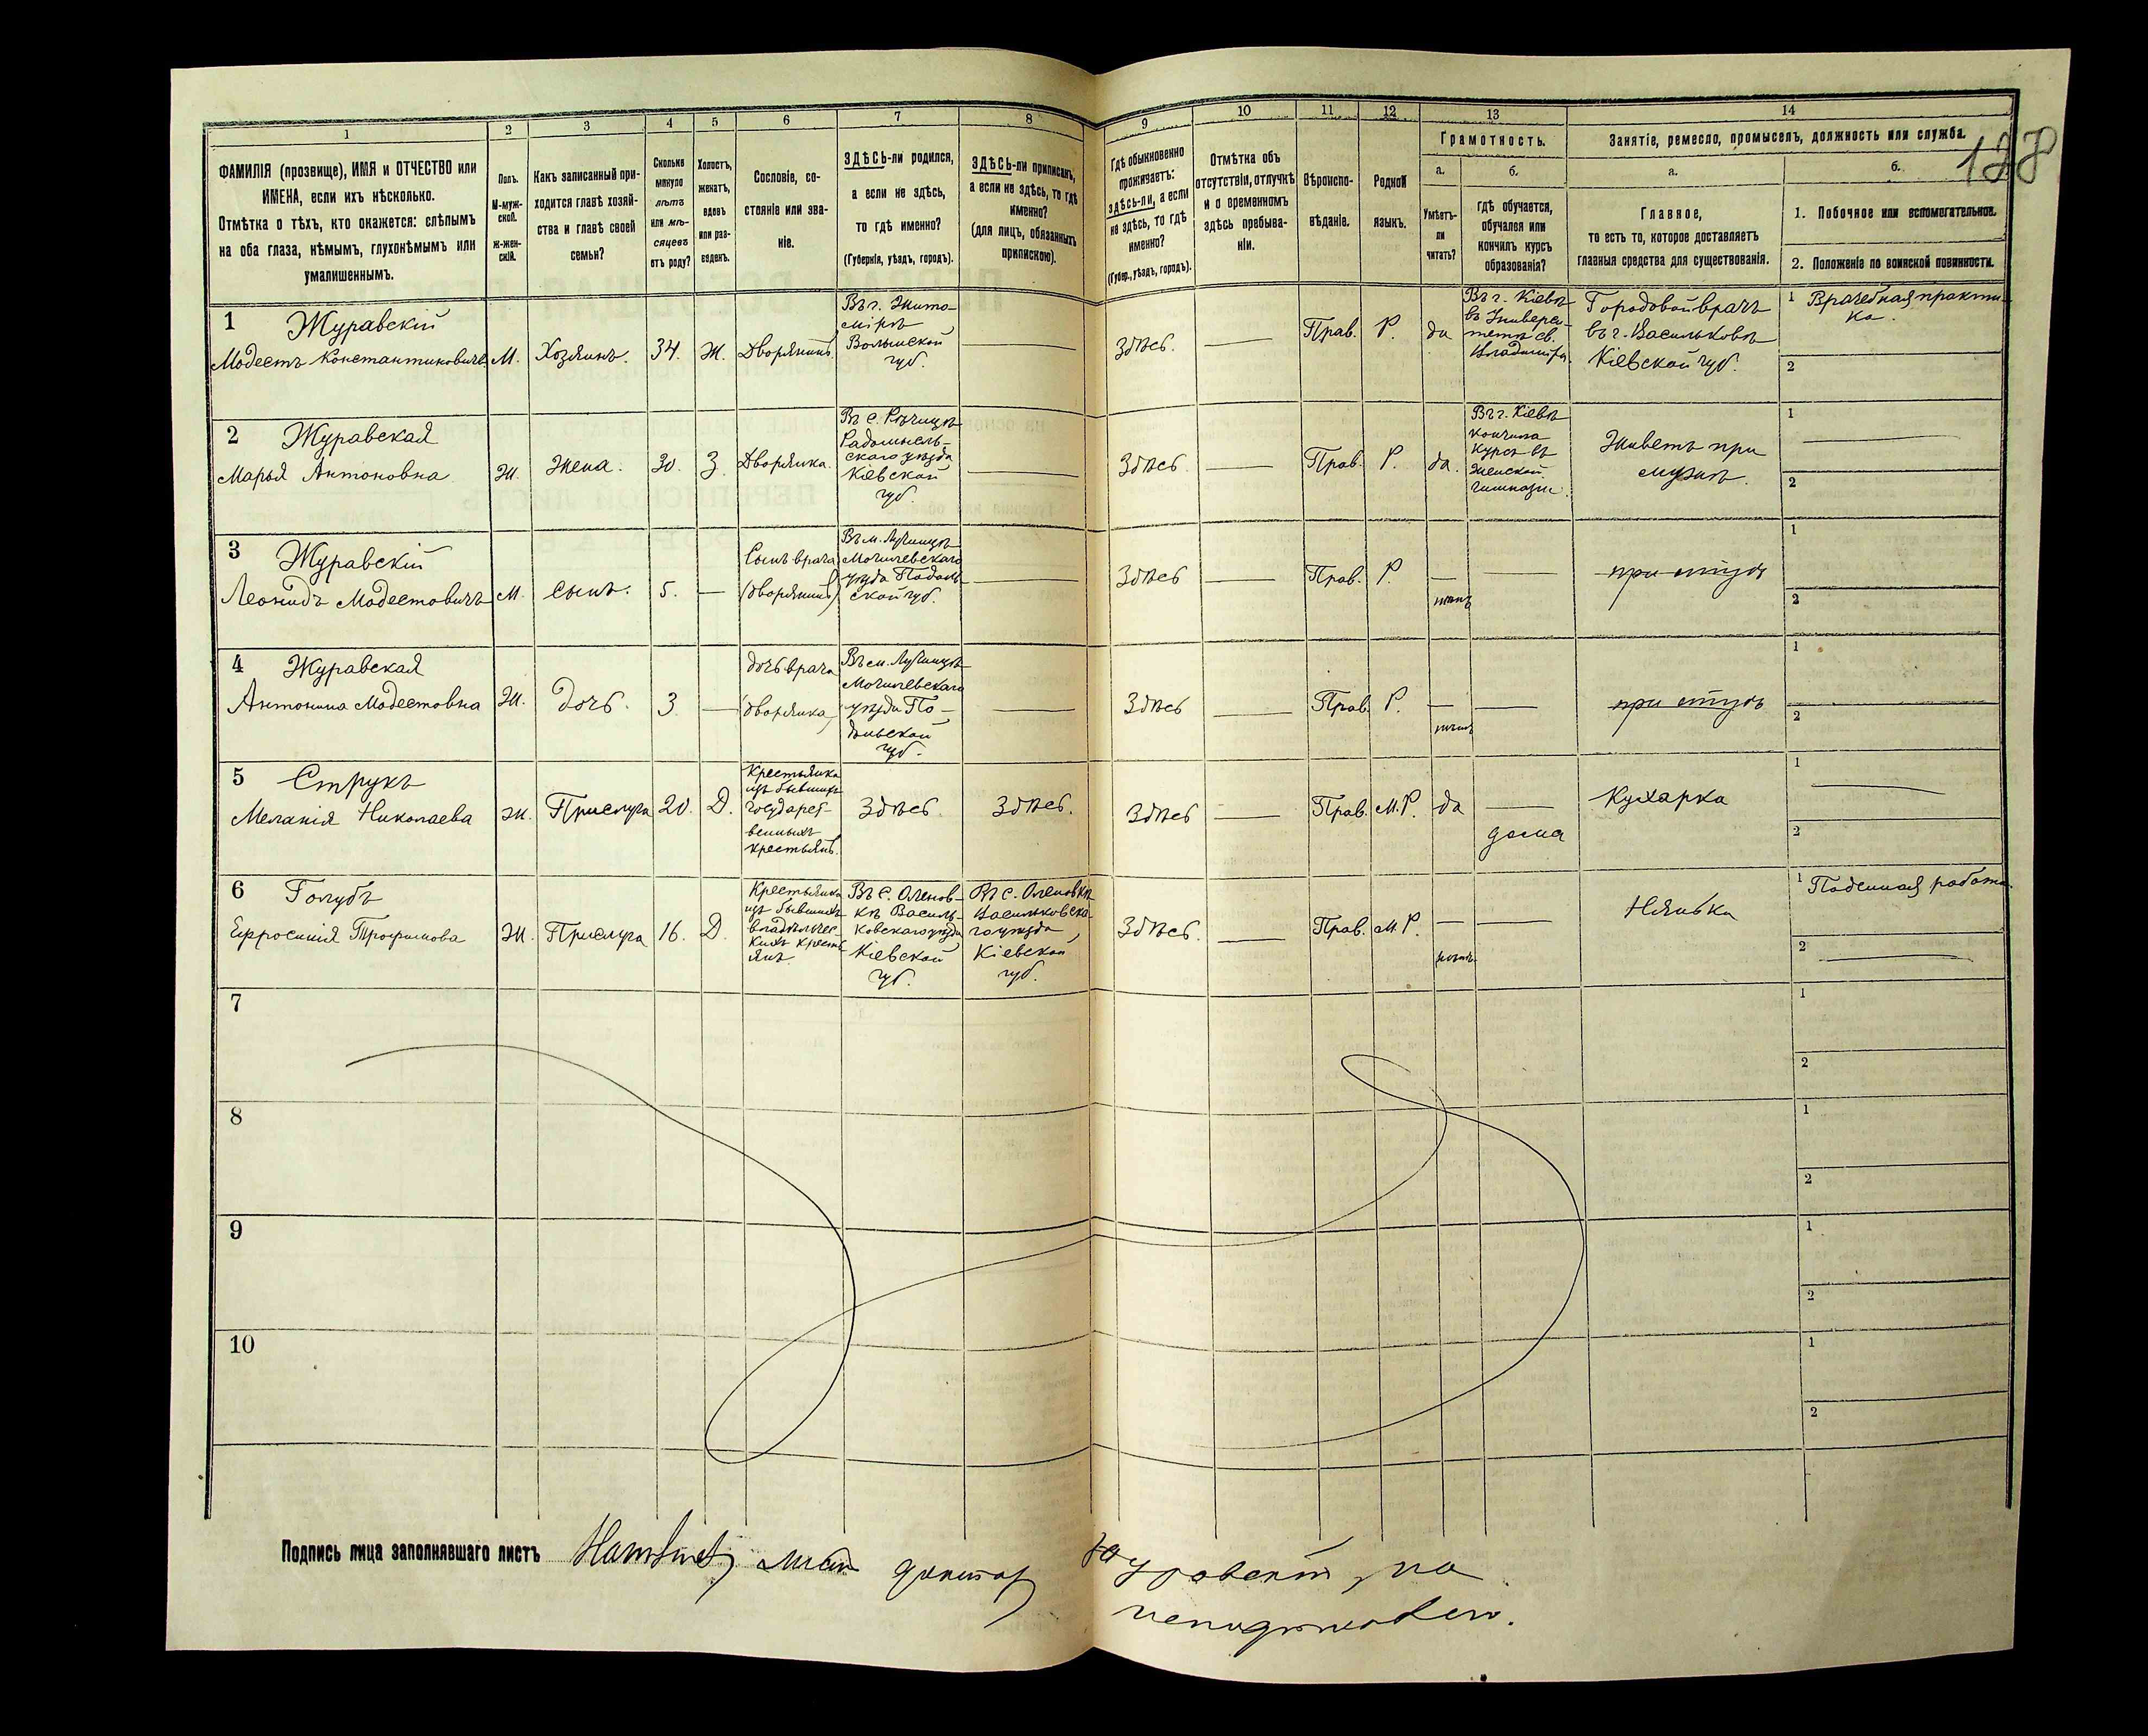 1
2
3
4
5
6
7
8
9
10
11
12
13
14
ФАМИЛІЯ (прозвище), ИМЯ и ОТЧЕСТВО или
ИМЕНА, если ихъ нѣсколько.
Отмѣтка о тѣхъ, кто окажется: слѣпымъ
на оба глаза, нѣмымъ, глухонѣмымъ или
умалишеннымъ.
Полъ.
М-муж-
ской.
ж-жен-
скій.
Какъ записанный при-
ходится главѣ хозяй-
ства и главѣ своей
семьи?
Сколько
минуло
лѣтъ
или мѣ-
сяцевъ
отъ роду?
Холостъ,
женатъ,
вдовъ
или раз-
веденъ.
Сословіе, со-
стояніе или зва-
ніе.
ЗДѢСЬ-ли родился,
а если не здѣсь,
то гдѣ именно?
(Губернія, уѣздъ, городъ).
ЗДѢСЬ-ли приписанъ,
а если не здѣсь, то гдѣ
именно?
(для лицъ, обязанныхъ
припискою).
Гдѣ обыкновенно
проживаетъ:
здѣсь-ли, а если
не здѣсь, то гдѣ
именно?
(Губер., уѣздъ, городъ).
Отмѣтка объ
отсутствіи, отлучкѣ
и о временномъ
здѣсь пребыва-
ніи.
Вѣроиспо-
вѣданіе.
Родной
языкъ.
Грамотность.
а.
б.
Умѣетъ-
ли
читать?
гдѣ обучается,
обучался или
кончилъ курсъ
образованія?
Занятіе, ремесло, промыселъ, должность или служба.
128
а.
б.
Главное,
то есть то, которое доставляетъ
главныя средства для существованія.
1. Побочное или вспомогательное.
2. Положеніе по воинской повинности.
1 Журавскій
Модестъ Константиновичъ
М.
Хозяинъ.
34.
Ж.
Дворянинъ
Въ г. Жито-
мірѣ
Волынской
губ.
Здѣсь.
Прав.
Р.
да
Въ г. Кіевѣ
въ Универси-
тетѣ св.
Владиміра.
Городовой врачъ
въ г. Васильковѣ
Кіевской губ.
1 Врачебная практи-
ка.
2
2 Журавская
Марья Антоновна
Ж.
Жена.
30.
З.
Дворянка.
Въ с. Рѣчицѣ
Радомысль-
скаго уѣзда
Кіевской
губ.
Здѣсь.
Прав.
Р.
да.
Въ г. Кіевѣ
кончила
курсъ въ
женской
гимназіи.
Живетъ при
мужѣ.
1
2
3 Журавскій
Леонидъ Модестовичъ
М.
сынъ.
5.
Сынъ врача
(дворянинъ)
Въ м. Лучинцѣ
Могилевскаго
уѣзда Подоль-
ской губ.
Здѣсь
Прав.
Р.
нѣтъ
при отцѣ
1
2
4 Журавская
Антонина Модестовна
Ж.
Дочь.
3
дочь врача
(дворянка)
Въ м. Лучинцѣ
Могилевскаго
уѣзда По-
дольской
губ.
Здѣсь
Прав.
Р.
нѣтъ
при отцѣ
1
2
5 Струкъ
Меланія Николаева
Ж.
Прислуга
20.
Д.
Крестьянка
изъ бывшихъ
государст-
венныхъ
крестьянъ.
Здѣсь.
Здѣсь.
Здѣсь
Прав.
М.Р.
да
дома
Кухарка
1
2
6 Голубъ
Ефросинія Трофимова
Ж.
Прислуга
16.
Д.
Крестьянка
изъ бывшихъ
владѣльчес-
кихъ кресть-
янъ
Въ с. Оленов-
кѣ Василь-
ковскаго уѣзда
Кіевской
губ.
Въ с. Оленовкѣ
Васильковска-
го уѣзда
Кіевской
губ.
Здѣсь.
Прав.
М.Р.
нѣтъ
Нянька
1 Поденная работа
2
7
1
2
8
1
2
9
1
2
10
1
2
Подпись лица заполнявшаго листъ